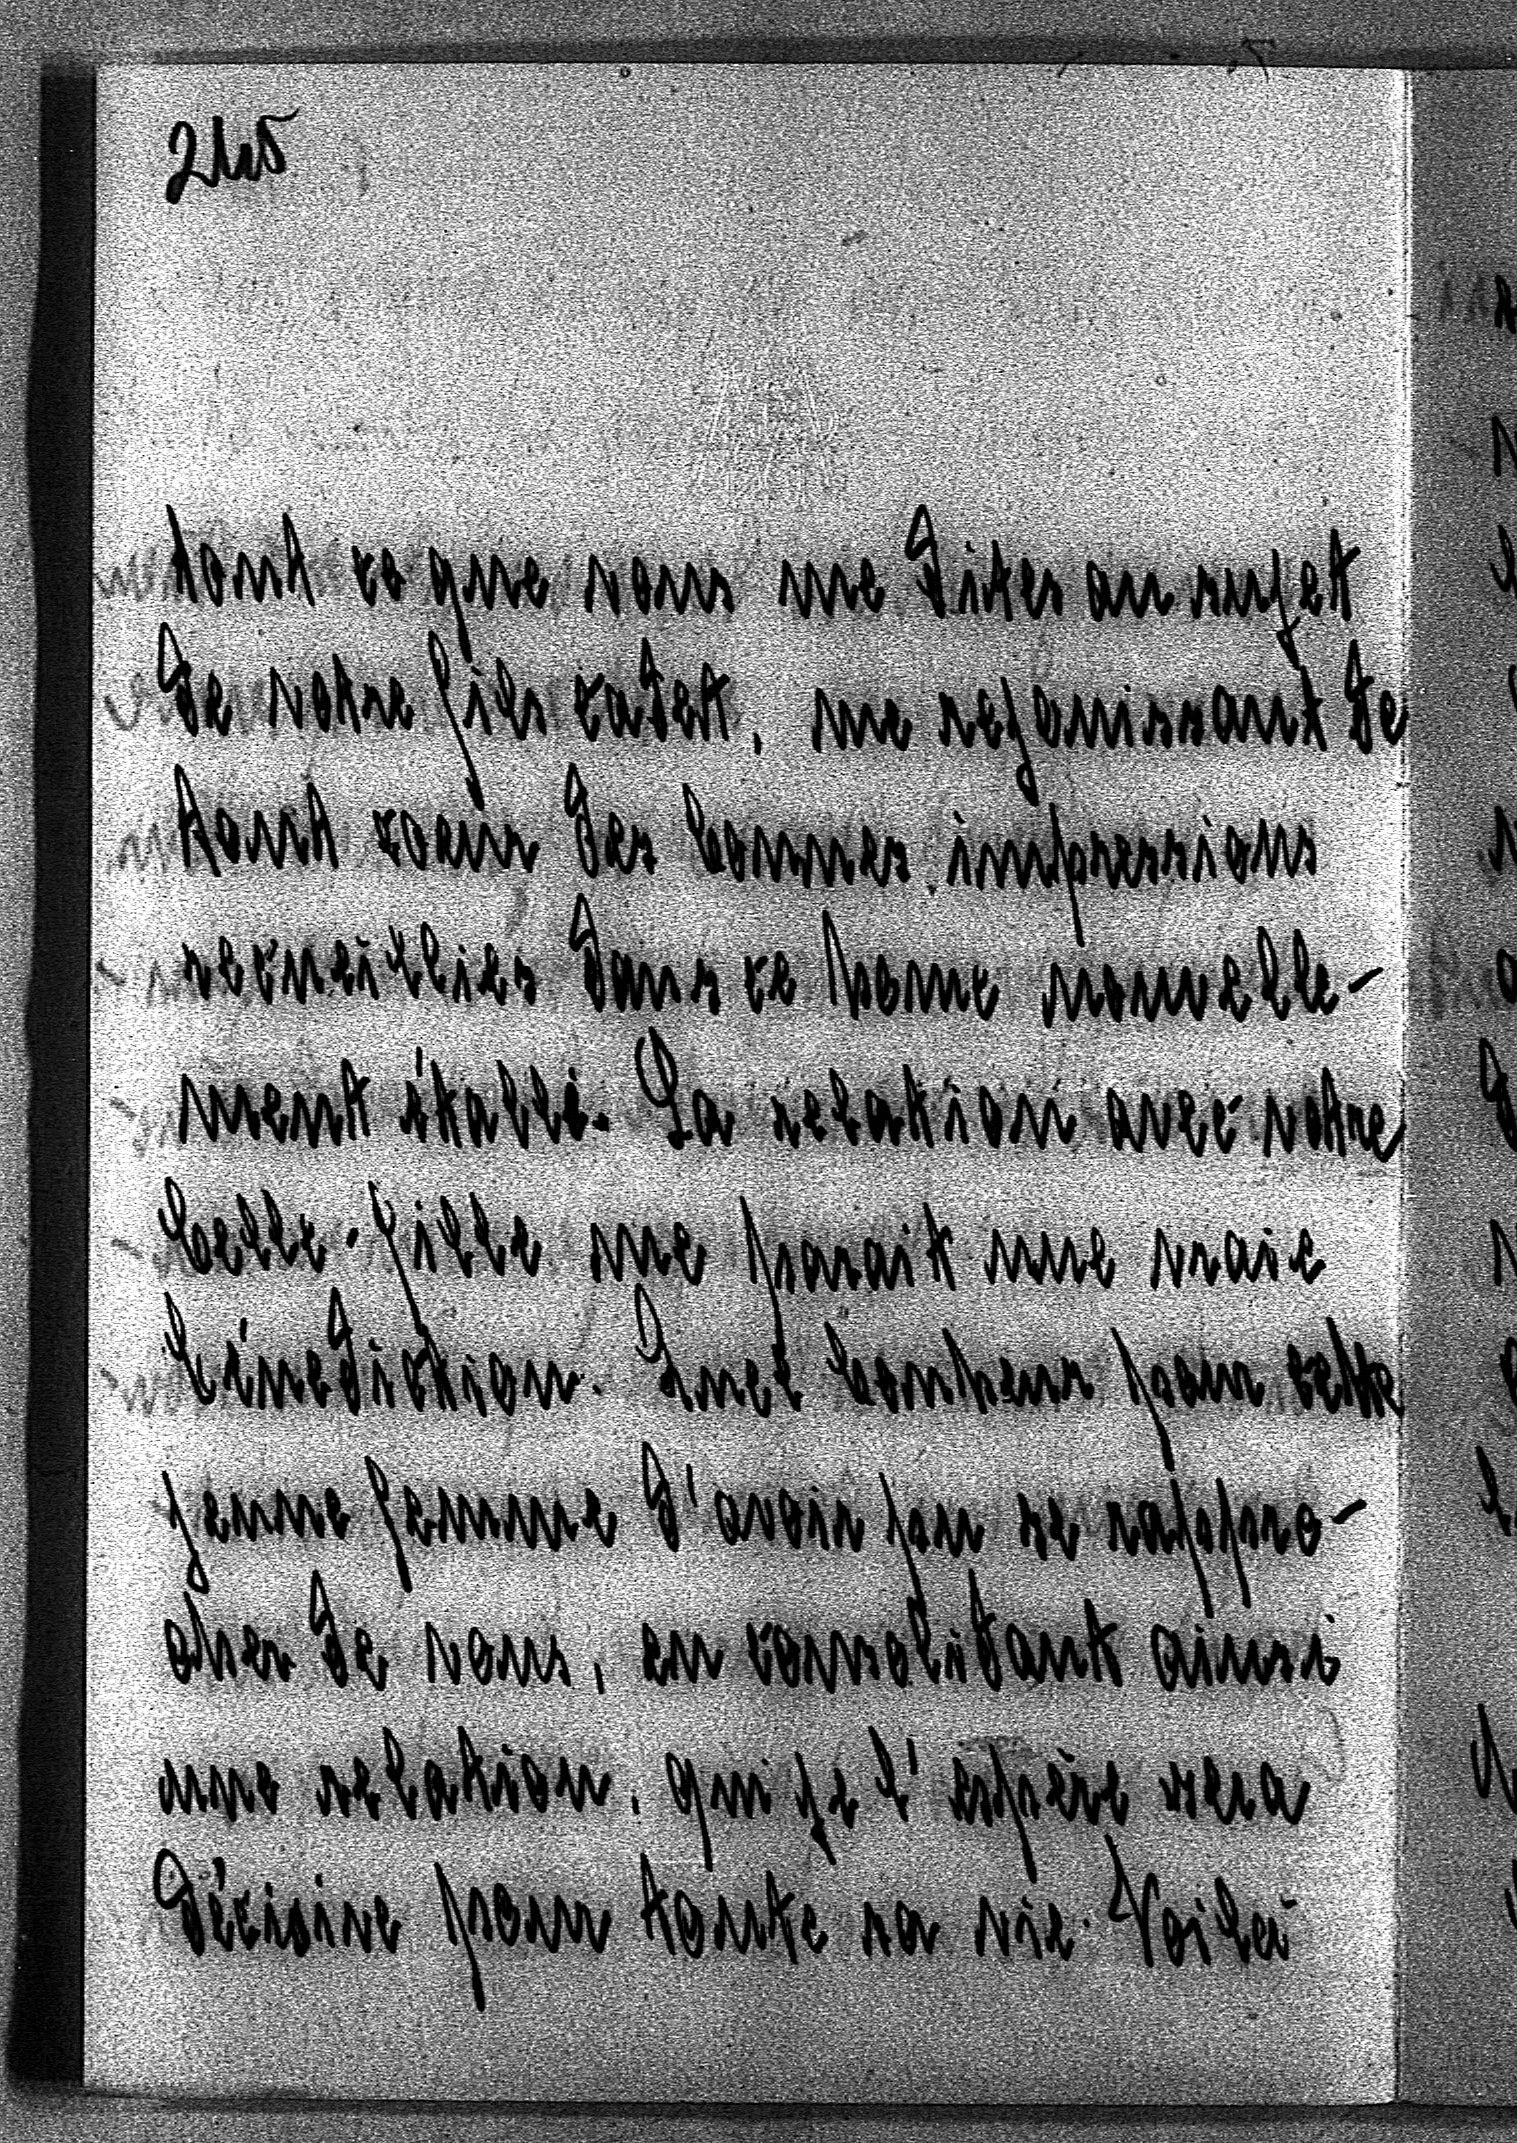 tout ce que vous me dites au sujet
de votre fils cadet, me rejouissant de
tout coeur des bonnes impressions
recueillies dans ce home nouvelle-
ment établi. La relation avec votre
belle-fille me parait une vraie
bénediction. Quel bonheur pour cette
jeune femme d'avoir pu se rappro-
cher de vous, en consolidant ainsi
une relation, qui je l'espère sera
décisive pour toute sa vie. Voilà